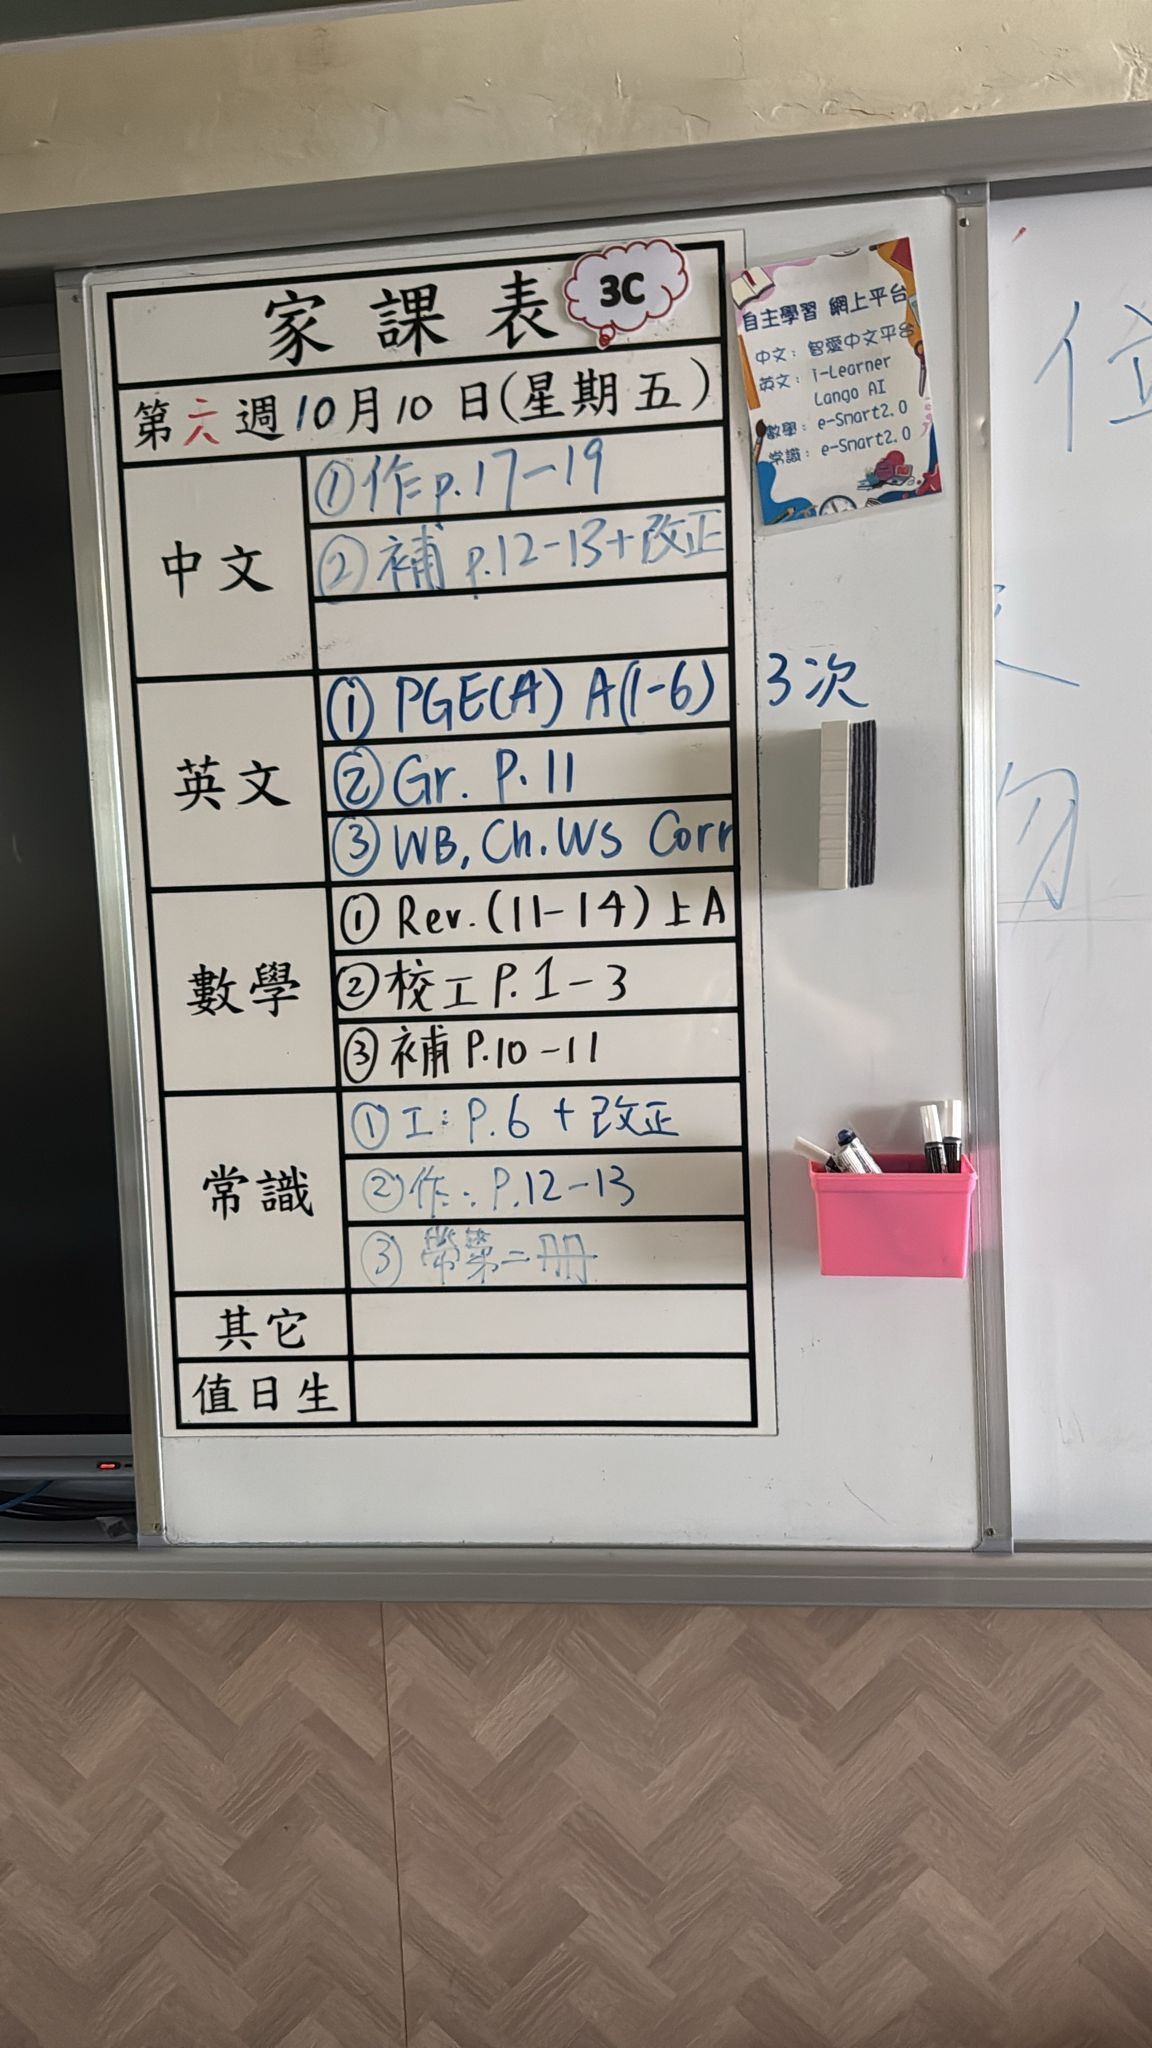 家課表
3C
第六週10月10日(星期五)
中文
①作p.17-19
②補 p.12-13+改正
英文
① PGE(A) A(1-6) 3次
② Gr. P.11
③ WB, Ch.WS Corr
數學
① Rev.(11-14)上A
②校工P.1-3
③補P.10-11
常識
①工:P.6+改正
②作:P.12-13
③ 常第二冊
其它
值日生
自主學習 網上平台
中文: 智愛中文平台
英文: i-Learner
Lango AI
數學: e-Smart2.0
常識: e-Smart2.0
位
勿